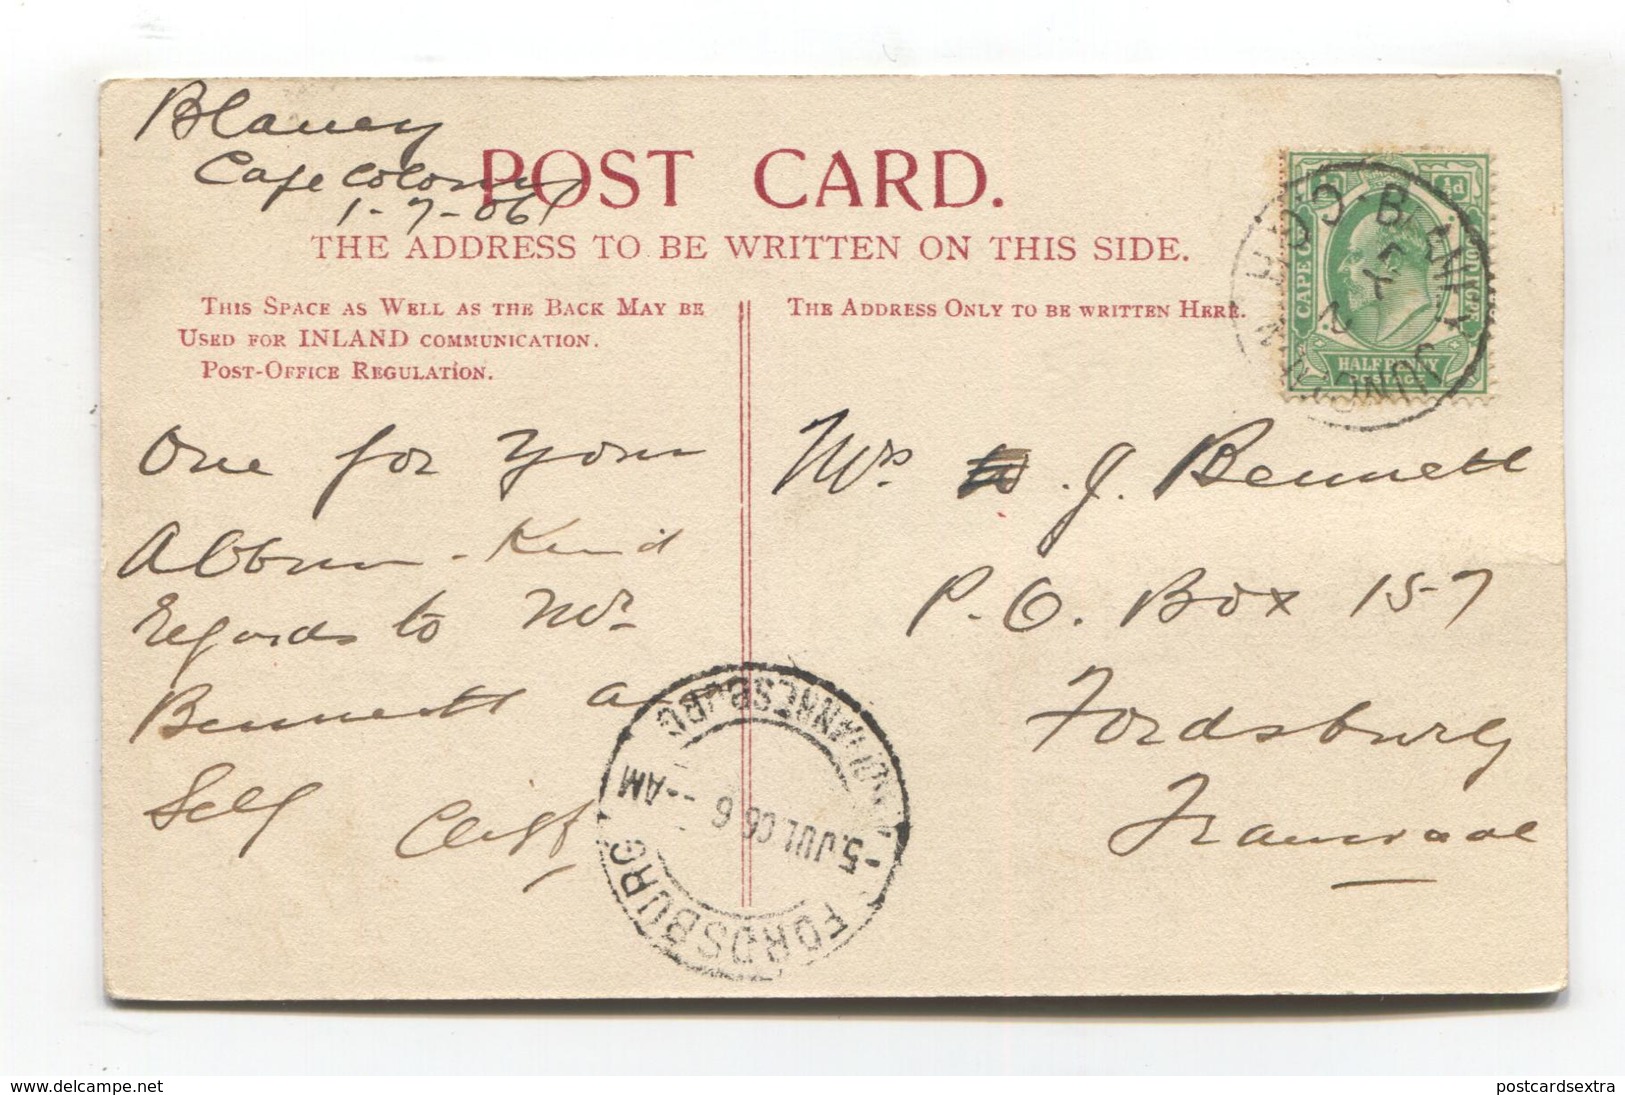 Blaney
Cape Colony
1-7-06
POST CARD.
THE ADDRESS TO BE WRITTEN ON THIS SIDE.
THIS SPACE AS WELL AS THE BACK MAY BE
USED FOR INLAND COMMUNICATION.
POST-OFFICE REGULATION.
THE ADDRESS ONLY TO BE WRITTEN HERE.
One for your
Album - Kind
regards to Mr
Bennett &
Self
Cliff
Mrs J. Bennett
P. O. Box 157
Fordsburg
Transvaal
CAPE OF GOOD HOPE
½d
HALFPENNY
POSTAGE
BLANEY JUNCTION
JOHANNESBURG
-5 JUL 06 6 -- AM
FORDSBURG
www.delcampe.net
postcardsextra